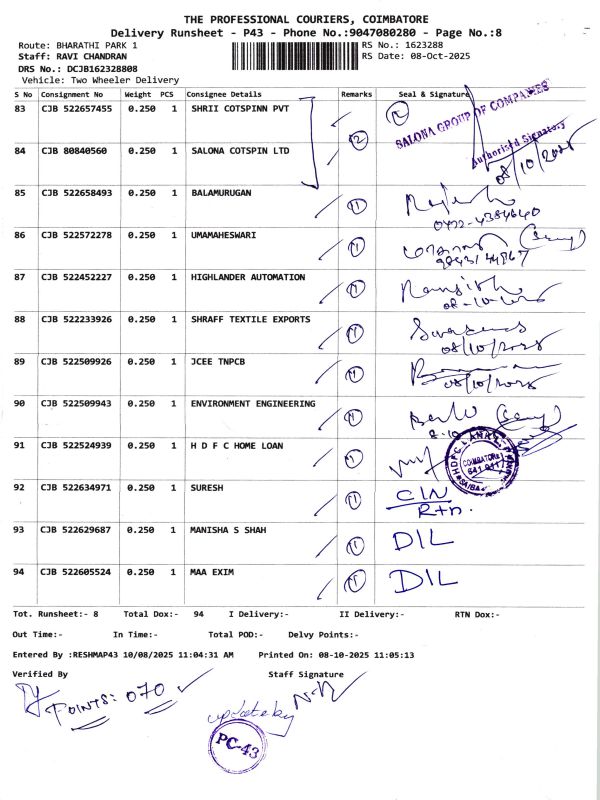 THE PROFESSIONAL COURIERS, COIMBATORE
Delivery Runsheet - P43 - Phone No.:9047080280 - Page No.:8
Route: BHARATHI PARK 1 RS No.: 1623288
Staff: RAVI CHANDRAN RS Date: 08-Oct-2025
DRS No.: DCJB162328808
Vehicle: Two Wheeler Delivery
S No Consignment No Weight PCS Consignee Details Remarks Seal & Signature
83 CJB 522657455 0.250 1 SHRII COTSPINN PVT 2 2 SALONA GROUP OF COMPANIES
Authorised Signatory
84 CJB 80840560 0.250 1 SALONA COTSPIN LTD 08/10/2025
85 CJB 522658493 0.250 1 BALAMURUGAN 11
0422-4384640
86 CJB 522572278 0.250 1 UMAMAHESWARI 11
87 CJB 522452227 0.250 1 HIGHLANDER AUTOMATION 11
88 CJB 522233926 0.250 1 SHRAFF TEXTILE EXPORTS 11
08/10/2025
89 CJB 522509926 0.250 1 JCEE TNPCB 11
08/10/2025
90 CJB 522509943 0.250 1 ENVIRONMENT ENGINEERING 11
8-10
91 CJB 522524939 0.250 1 H D F C HOME LOAN 11
COIMBATORE
641 011
92 CJB 522634971 0.250 1 SURESH 11 CIN
Rtn.
93 CJB 522629687 0.250 1 MANISHA S SHAH 11 DIL
94 CJB 522605524 0.250 1 MAA EXIM 11 DIL
Tot. Runsheet:- 8 Total Dox:- 94 I Delivery:- II Delivery:- RTN Dox:-
Out Time:- In Time:- Total POD:- Delvy Points:-
Entered By :RESHMAP43 10/08/2025 11:04:31 AM Printed On: 08-10-2025 11:05:13
Verified By Staff Signature
POINTS: 070
update by
PC-43